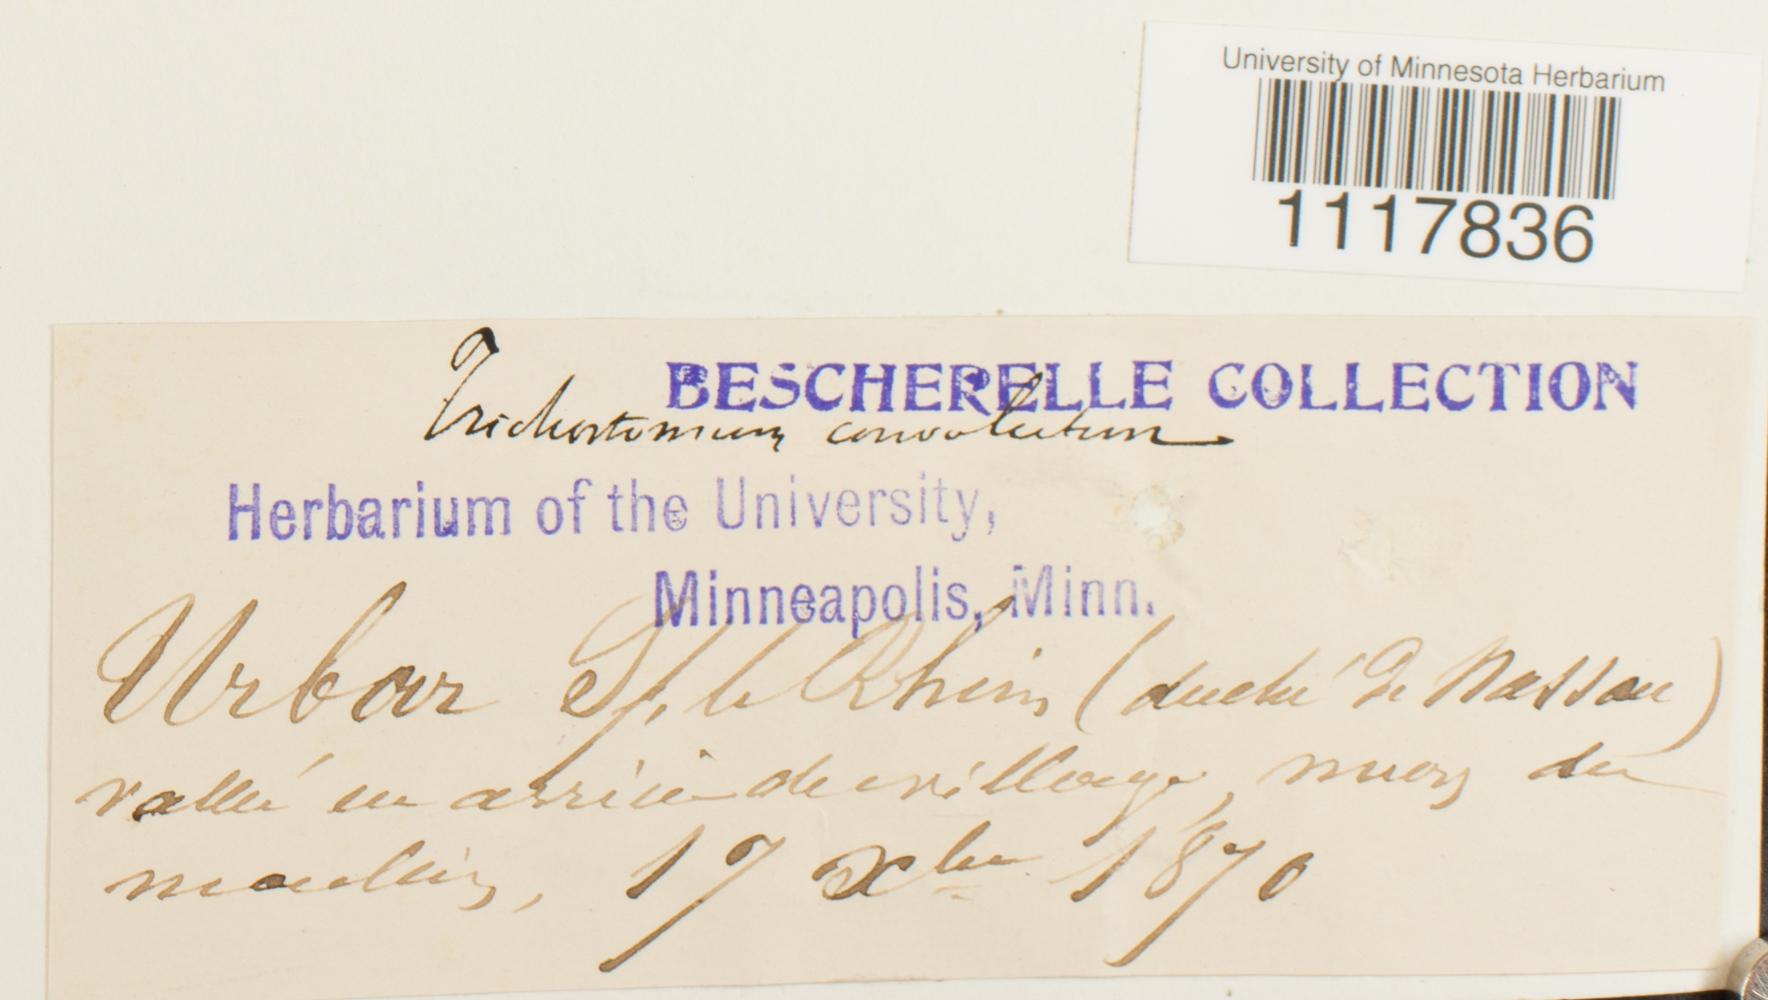 University of Minnesota Herbarium
1117836
BESCHERELLE COLLECTION
Trichostomum convolutum
Herbarium of the University,
Minneapolis, Minn.
Urbar S/ le Rhin (duché de Nassau)
vallée en arrière de village, murs du
moulin, 17 Xbre 1870